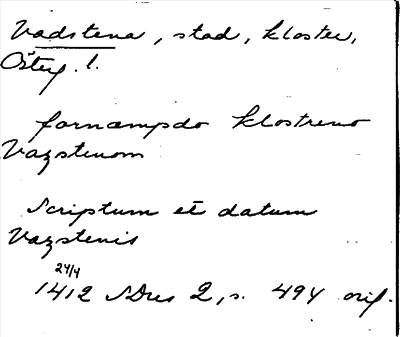 Vadstena, stad, kloster,
Österg. l.
fornæmpdo klostreno
Vazstenom
Scriptum et datum
Vazstenis
24/4
1412 SDns 2, s. 494 orig.